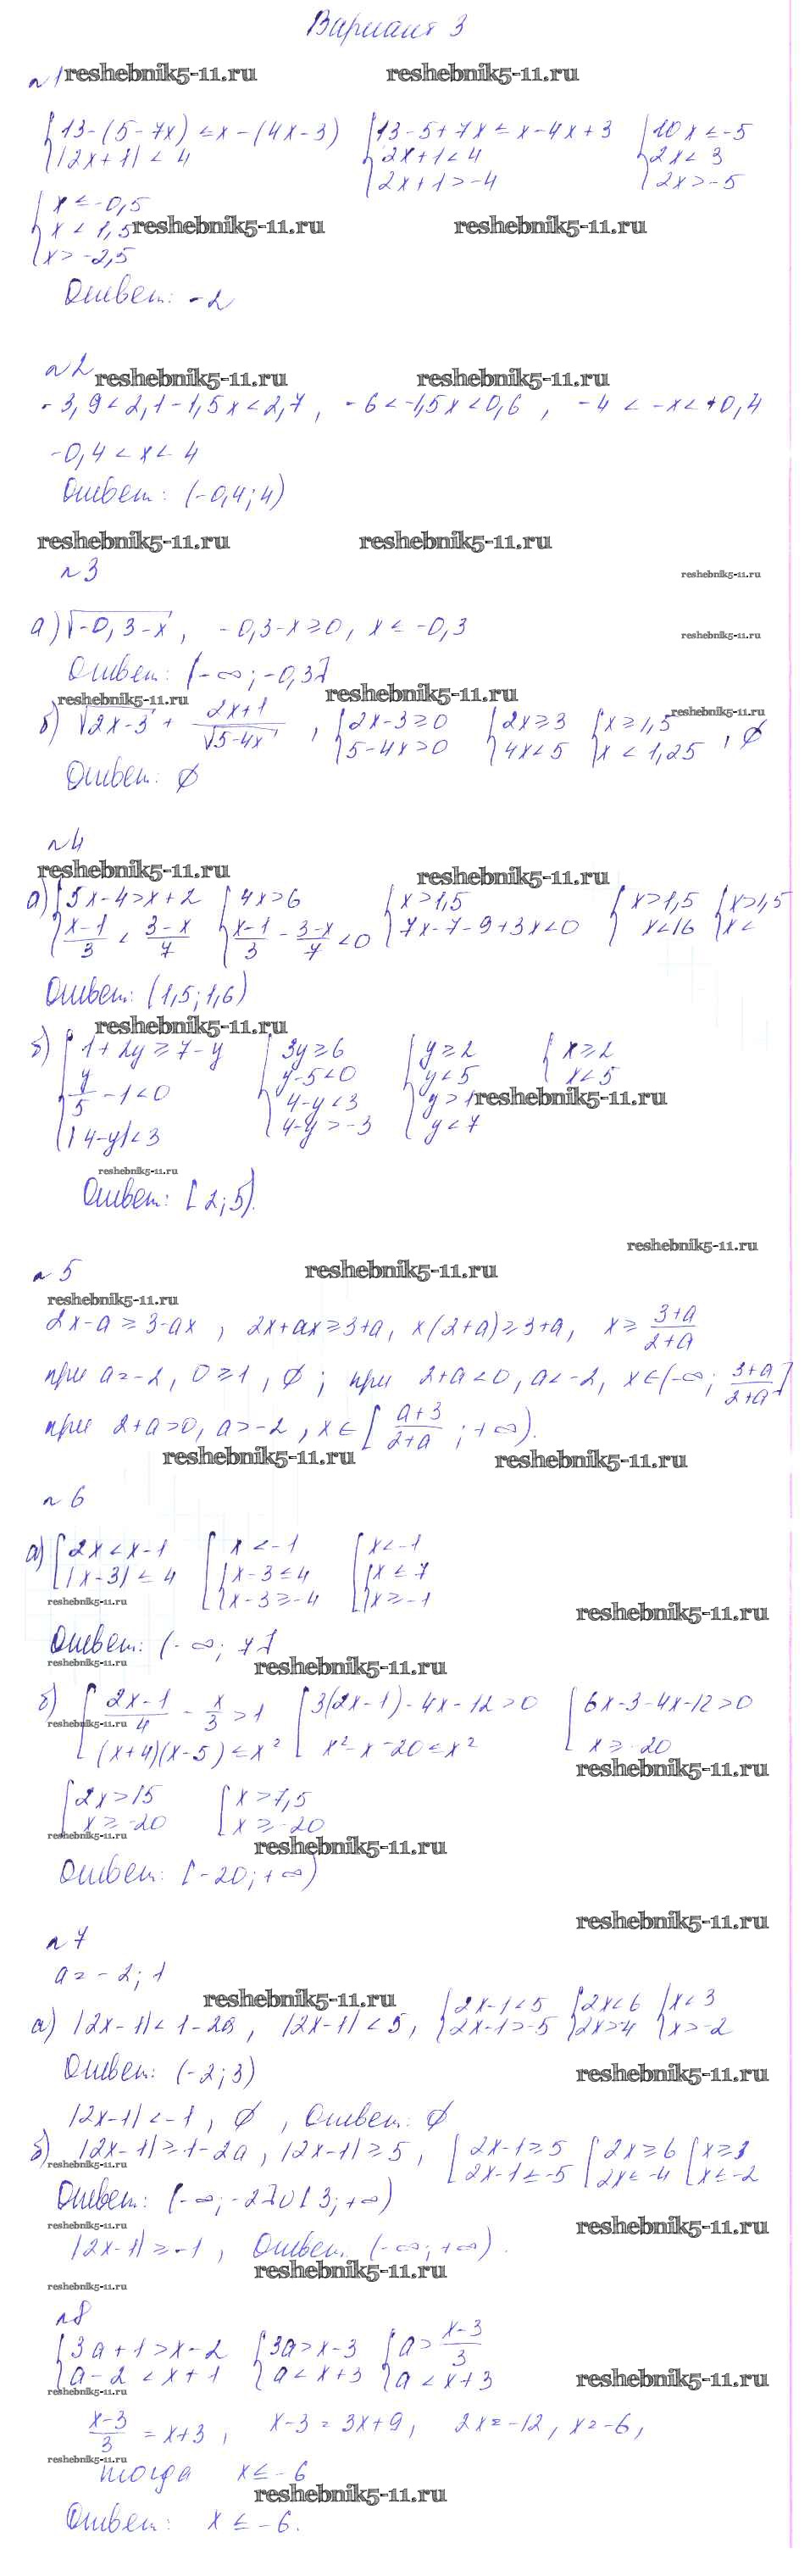 Вариант 3
n 1 reshebnik5-11.ru reshebnik5-11.ru
{13-(5-7x) ≤ x-(4x-3) {13-5+7x ≤ x-4x+3 {10x ≤ -5
|2x+1| < 4 2x+1 < 4 2x < 3
2x+1 > -4 2x > -5
{x ≤ -0,5
x < 1,5 reshebnik5-11.ru reshebnik5-11.ru
x > -2,5
Ответ: -2
n 2
reshebnik5-11.ru reshebnik5-11.ru
-3,9 < 2,1-1,5x < 2,7, -6 < -1,5x < 0,6, -4 < -x < +0,4
-0,4 < x < 4
Ответ: (-0,4; 4)
reshebnik5-11.ru reshebnik5-11.ru
n 3 reshebnik5-11.ru
а) √-0,3-x, -0,3-x ≥ 0, x ≤ -0,3 reshebnik5-11.ru
Ответ: (-∞; -0,3]
reshebnik5-11.ru reshebnik5-11.ru reshebnik5-11.ru
б) √2x-3 + (2x+1)/√5-4x, {2x-3 ≥ 0 {2x ≥ 3 {x ≥ 1,5
5-4x > 0 4x < 5 x < 1,25, ∅
Ответ: ∅
n 4
reshebnik5-11.ru reshebnik5-11.ru
а) {5x-4 > x+2 {4x > 6 {x > 1,5 {x > 1,5 {x > 1,5
(x-1)/3 < (3-x)/7 (x-1)/3 - (3-x)/7 < 0 7x-7-9+3x < 0 x < 16 x <
Ответ: (1,5; 1,6)
reshebnik5-11.ru
б) {1+2y ≥ 7-y {3y ≥ 6 {y ≥ 2 {x ≥ 2
y/5 - 1 < 0 y-5 < 0 y < 5 x < 5
4-y < 3 y > 1 reshebnik5-11.ru
|4-y| < 3 4-y > -3 y < 7
reshebnik5-11.ru
Ответ: [2; 5).
reshebnik5-11.ru
n 5 reshebnik5-11.ru
reshebnik5-11.ru
2x-a ≥ 3-ax, 2x+ax ≥ 3+a, x(2+a) ≥ 3+a, x ≥ (3+a)/(2+a)
при a=-2, 0 ≥ 1, ∅; при 2+a < 0, a < -2, x ∈ (-∞; (3+a)/(2+a)]
при 2+a > 0, a > -2, x ∈ [(a+3)/(2+a); +∞).
reshebnik5-11.ru reshebnik5-11.ru
n 6
а) [2x < x-1 [x < -1 [x < -1
|x-3| ≤ 4 {x-3 ≤ 4 {x ≤ 7
reshebnik5-11.ru x-3 ≥ -4 x ≥ -1
reshebnik5-11.ru
Ответ: (-∞; 7]
reshebnik5-11.ru reshebnik5-11.ru
б) [(2x-1)/4 - x/3 > 1 [3(2x-1)-4x-12 > 0 [6x-3-4x-12 > 0
reshebnik5-11.ru
(x+4)(x-5) ≤ x² x²-x-20 ≤ x² x ≥ -20
reshebnik5-11.ru
[2x > 15 [x > 7,5
x ≥ -20 x ≥ -20
reshebnik5-11.ru reshebnik5-11.ru
Ответ: [-20; +∞)
reshebnik5-11.ru
n 7
a = -2; 1
reshebnik5-11.ru
а) |2x-1| < 1-2a, |2x-1| < 5, {2x-1 < 5 {2x < 6 {x < 3
2x-1 > -5 2x > -4 x > -2
Ответ: (-2; 3) reshebnik5-11.ru
|2x-1| < -1, ∅, Ответ: ∅
б) |2x-1| ≥ 1-2a, |2x-1| ≥ 5, [2x-1 ≥ 5 [2x ≥ 6 [x ≥ 3
reshebnik5-11.ru 2x-1 ≤ -5 2x ≤ -4 x ≤ -2
Ответ: (-∞; -2]∪[3; +∞)
reshebnik5-11.ru reshebnik5-11.ru
|2x-1| ≥ -1, Ответ. (-∞; +∞).
reshebnik5-11.ru
reshebnik5-11.ru
n 8
{3a+1 > x-2 {3a > x-3 {a > (x-3)/3
a-2 < x+1 a < x+3 a < x+3 reshebnik5-11.ru
reshebnik5-11.ru
(x-3)/3 = x+3, x-3 = 3x+9, 2x = -12, x = -6,
reshebnik5-11.ru
тогда x ≤ -6
reshebnik5-11.ru
Ответ: x ≤ -6.